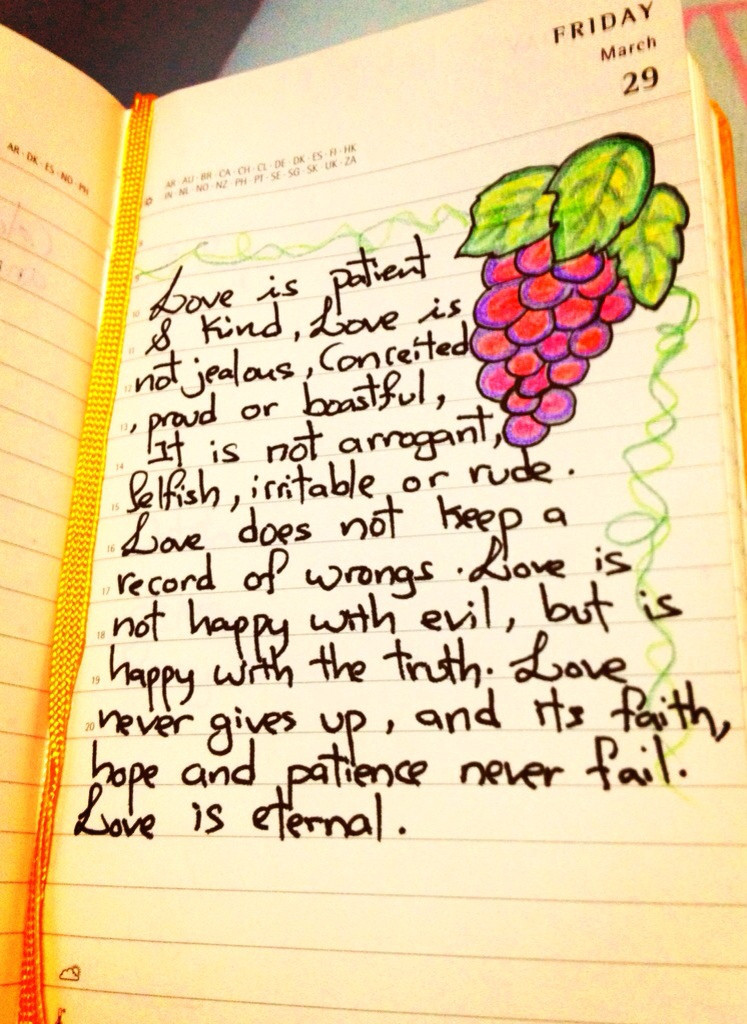 FRIDAY
March
29
AR·DK·ES·NO·PH
AR·AU·BR·CA·CH·CL·DE·DK·ES·FI·HK
IN·NL·NO·NZ·PH·PT·SE·SG·SK·UK·ZA
Love is patient
& kind, Love is
not jealous, Conceited
, proud or boastful,
It is not arrogant,
Selfish, irritable or rude.
Love does not keep a
record of wrongs. Love is
not happy with evil, but is
happy with the truth. Love
never gives up, and its faith,
hope and patience never fail.
Love is eternal.